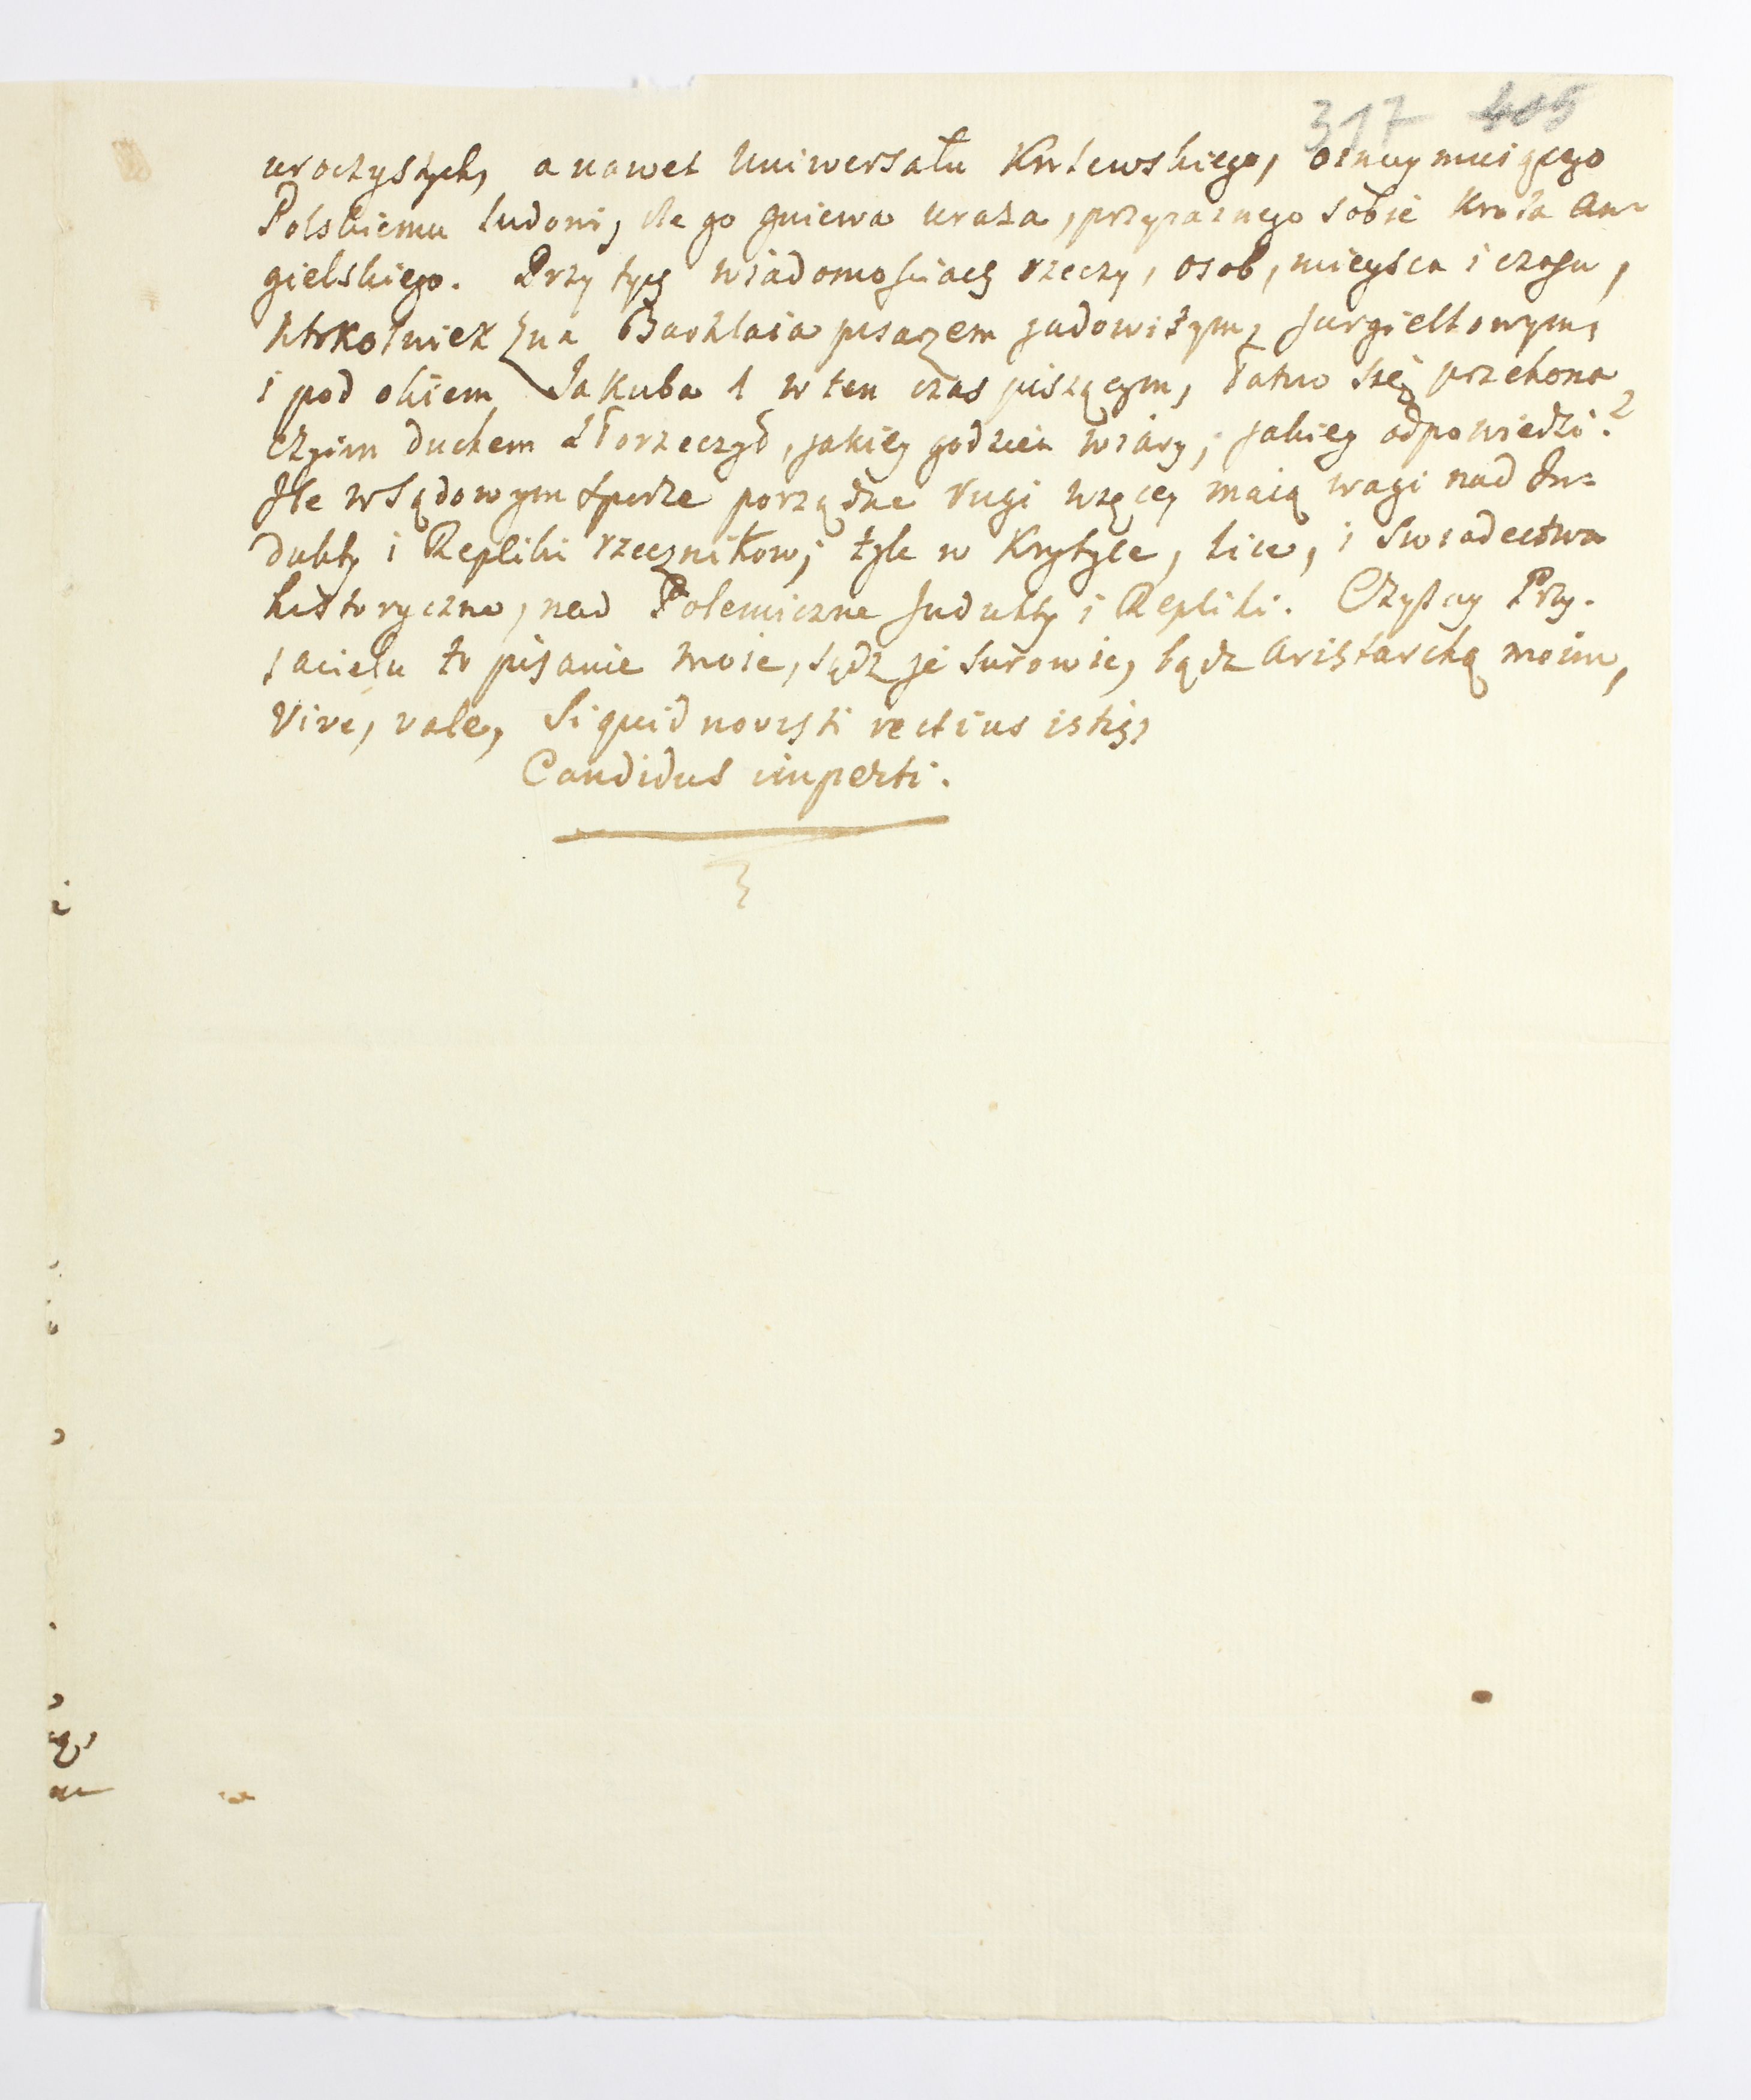 317 405
uroczystych, a nawet Uniwersału Krolewskiego, oznaymuiącego
Polskiemu ludowi, że go gniewa uraza, przyiaznego sobie Krola An-
gielskiego. Przy tych wiadomościach rzeczy, osob, mieysca i czasu,
ktokolwiek zna Barklaia pisarzem jadowitym, jurgieltowym,
i pod okiem Jakuba 1 w ten czas piszącym, łatwo się przekona
czyim duchem złorzeczył, jakiey godzien wiary, jakiey odpowiedzi?
Ile w sądowym sporze porządne rugi więcey maią wagi nad In-
dukty i Repliki rzecznikow; tyle w Krytyce, lice, i swiadectwa
historyczne, nad Polemiczne Indukty i Repliki. Czytay Przy-
iacielu to pisanie moie, sądz je surowie, bądz Aristarchą moim,
Vive, vale, Si quid novisti rectius istis,
Candidus imperti.